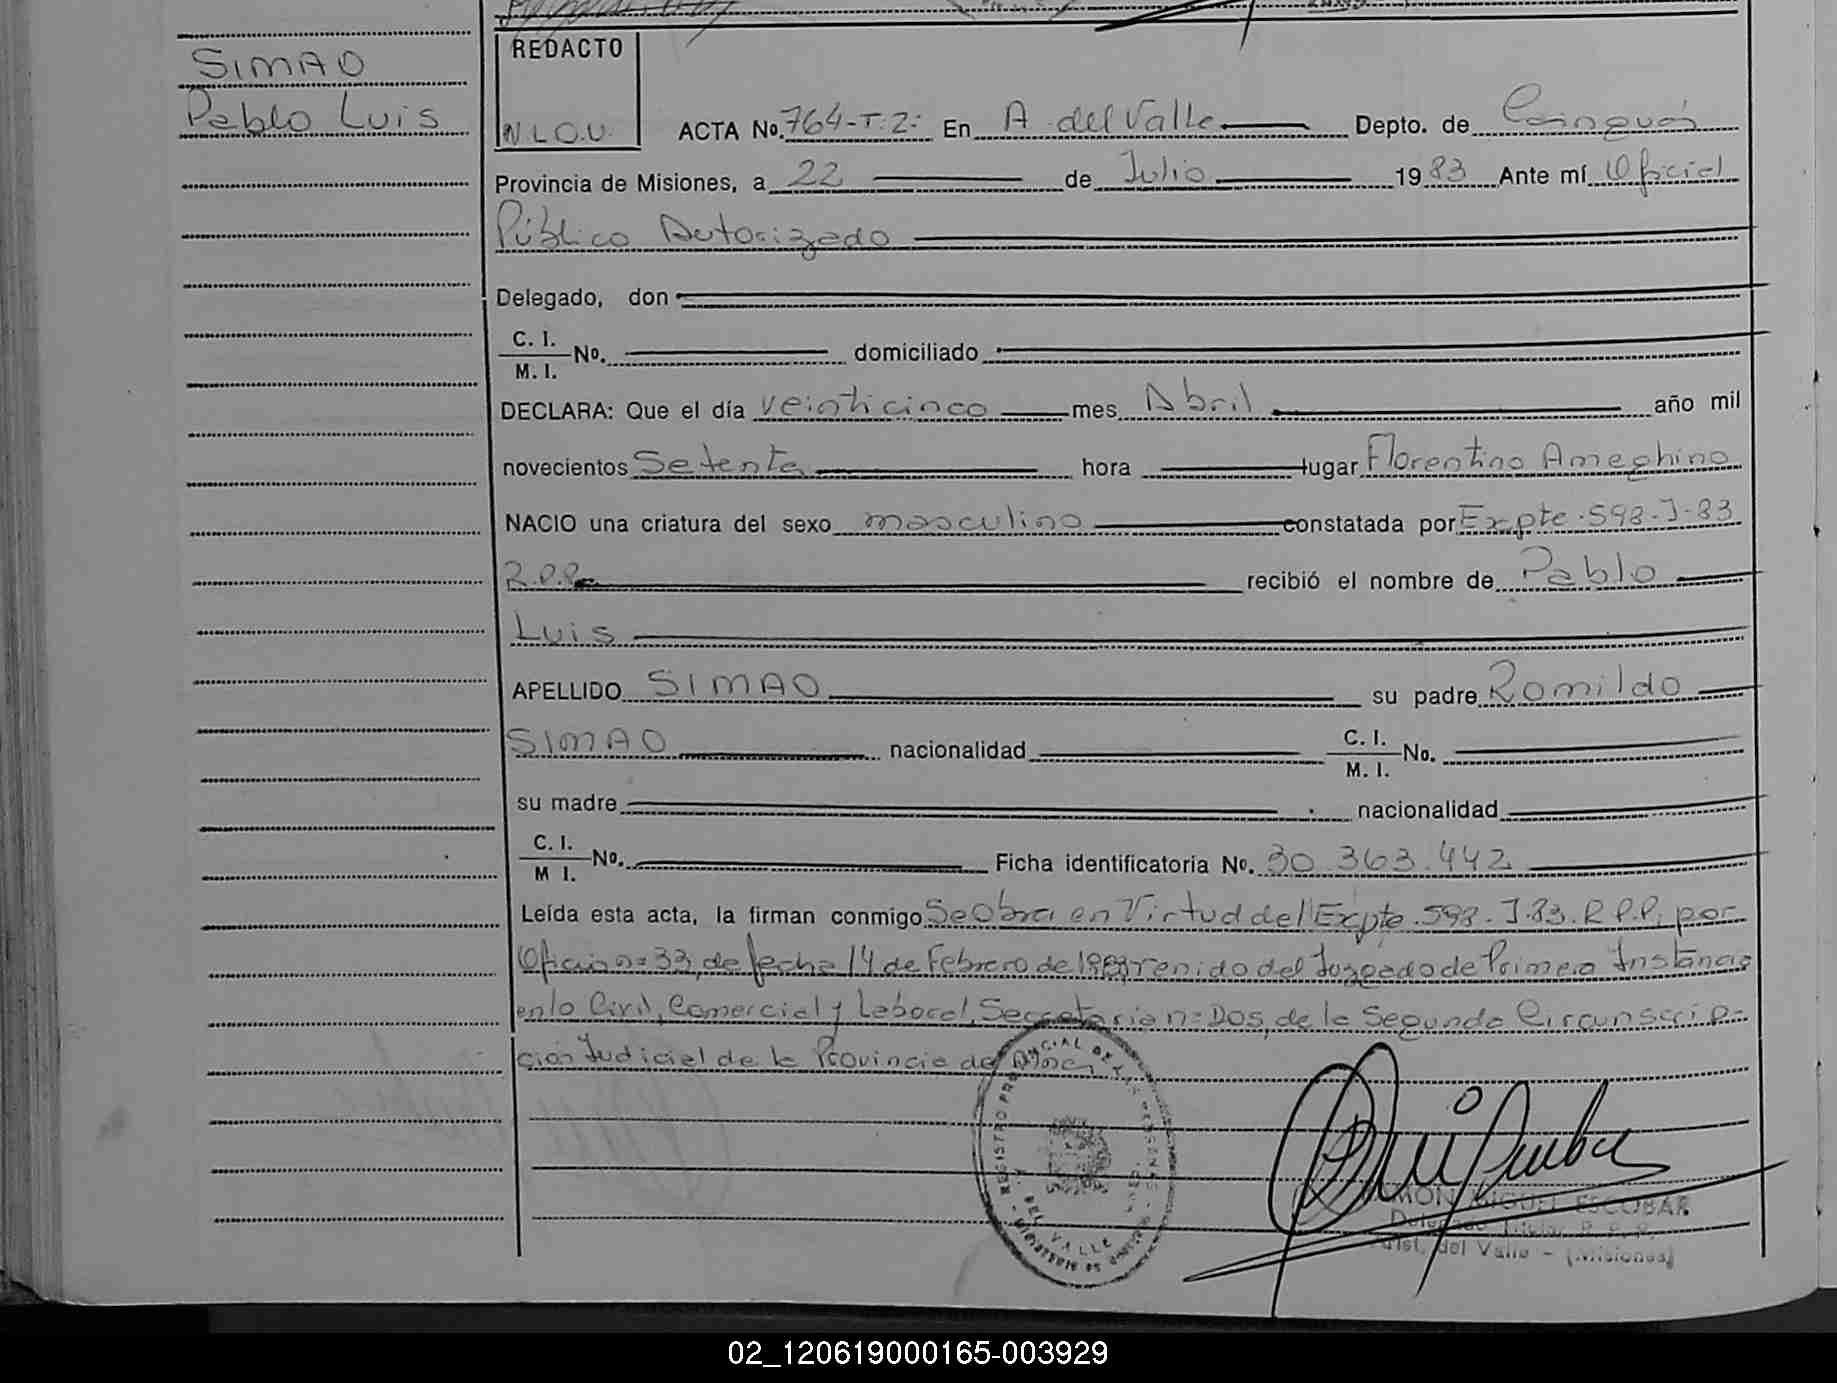 SIMAO
Pablo Luis
REDACTO
N.L.O.U.
ACTA No. 764-T.2: En A. del Valle Depto. de Cainguás
Provincia de Misiones, a 22 de Julio 1983 Ante mí Oficial
Público Autorizado
Delegado, don
C. I.
M. I. No. domiciliado
DECLARA: Que el día veinticinco mes Abril año mil
novecientos Setenta hora lugar Florentino Ameghino
NACIO una criatura del sexo masculino constatada por Expte. 598-J-83
R.P.P. recibió el nombre de Pablo
Luis
APELLIDO SIMAO su padre Romildo
SIMAO nacionalidad C. I.
M. I. No.
su madre nacionalidad
C. I.
M I. No. Ficha identificatoria No. 30.363.442
Leída esta acta, la firman conmigo Se Obra en Virtud del Expte. 598-J-83. R.P.P, por
Oficio nº 33, de fecha 14 de Febrero de 1983, venido del Juzgado de Primera Instancia
en lo Civil, Comercial y Laboral, Secretaria nº Dos, de la Segunda Circunscrip-
ción Judicial de la Provincia de
REGISTRO PROVINCIAL DE LAS PERSONAS
DEL VALLE
RAMON MIGUEL ESCOBAR
Delegado Titular R. P. P.
Arist. del Valle - (Misiones)
02_120619000165-003929